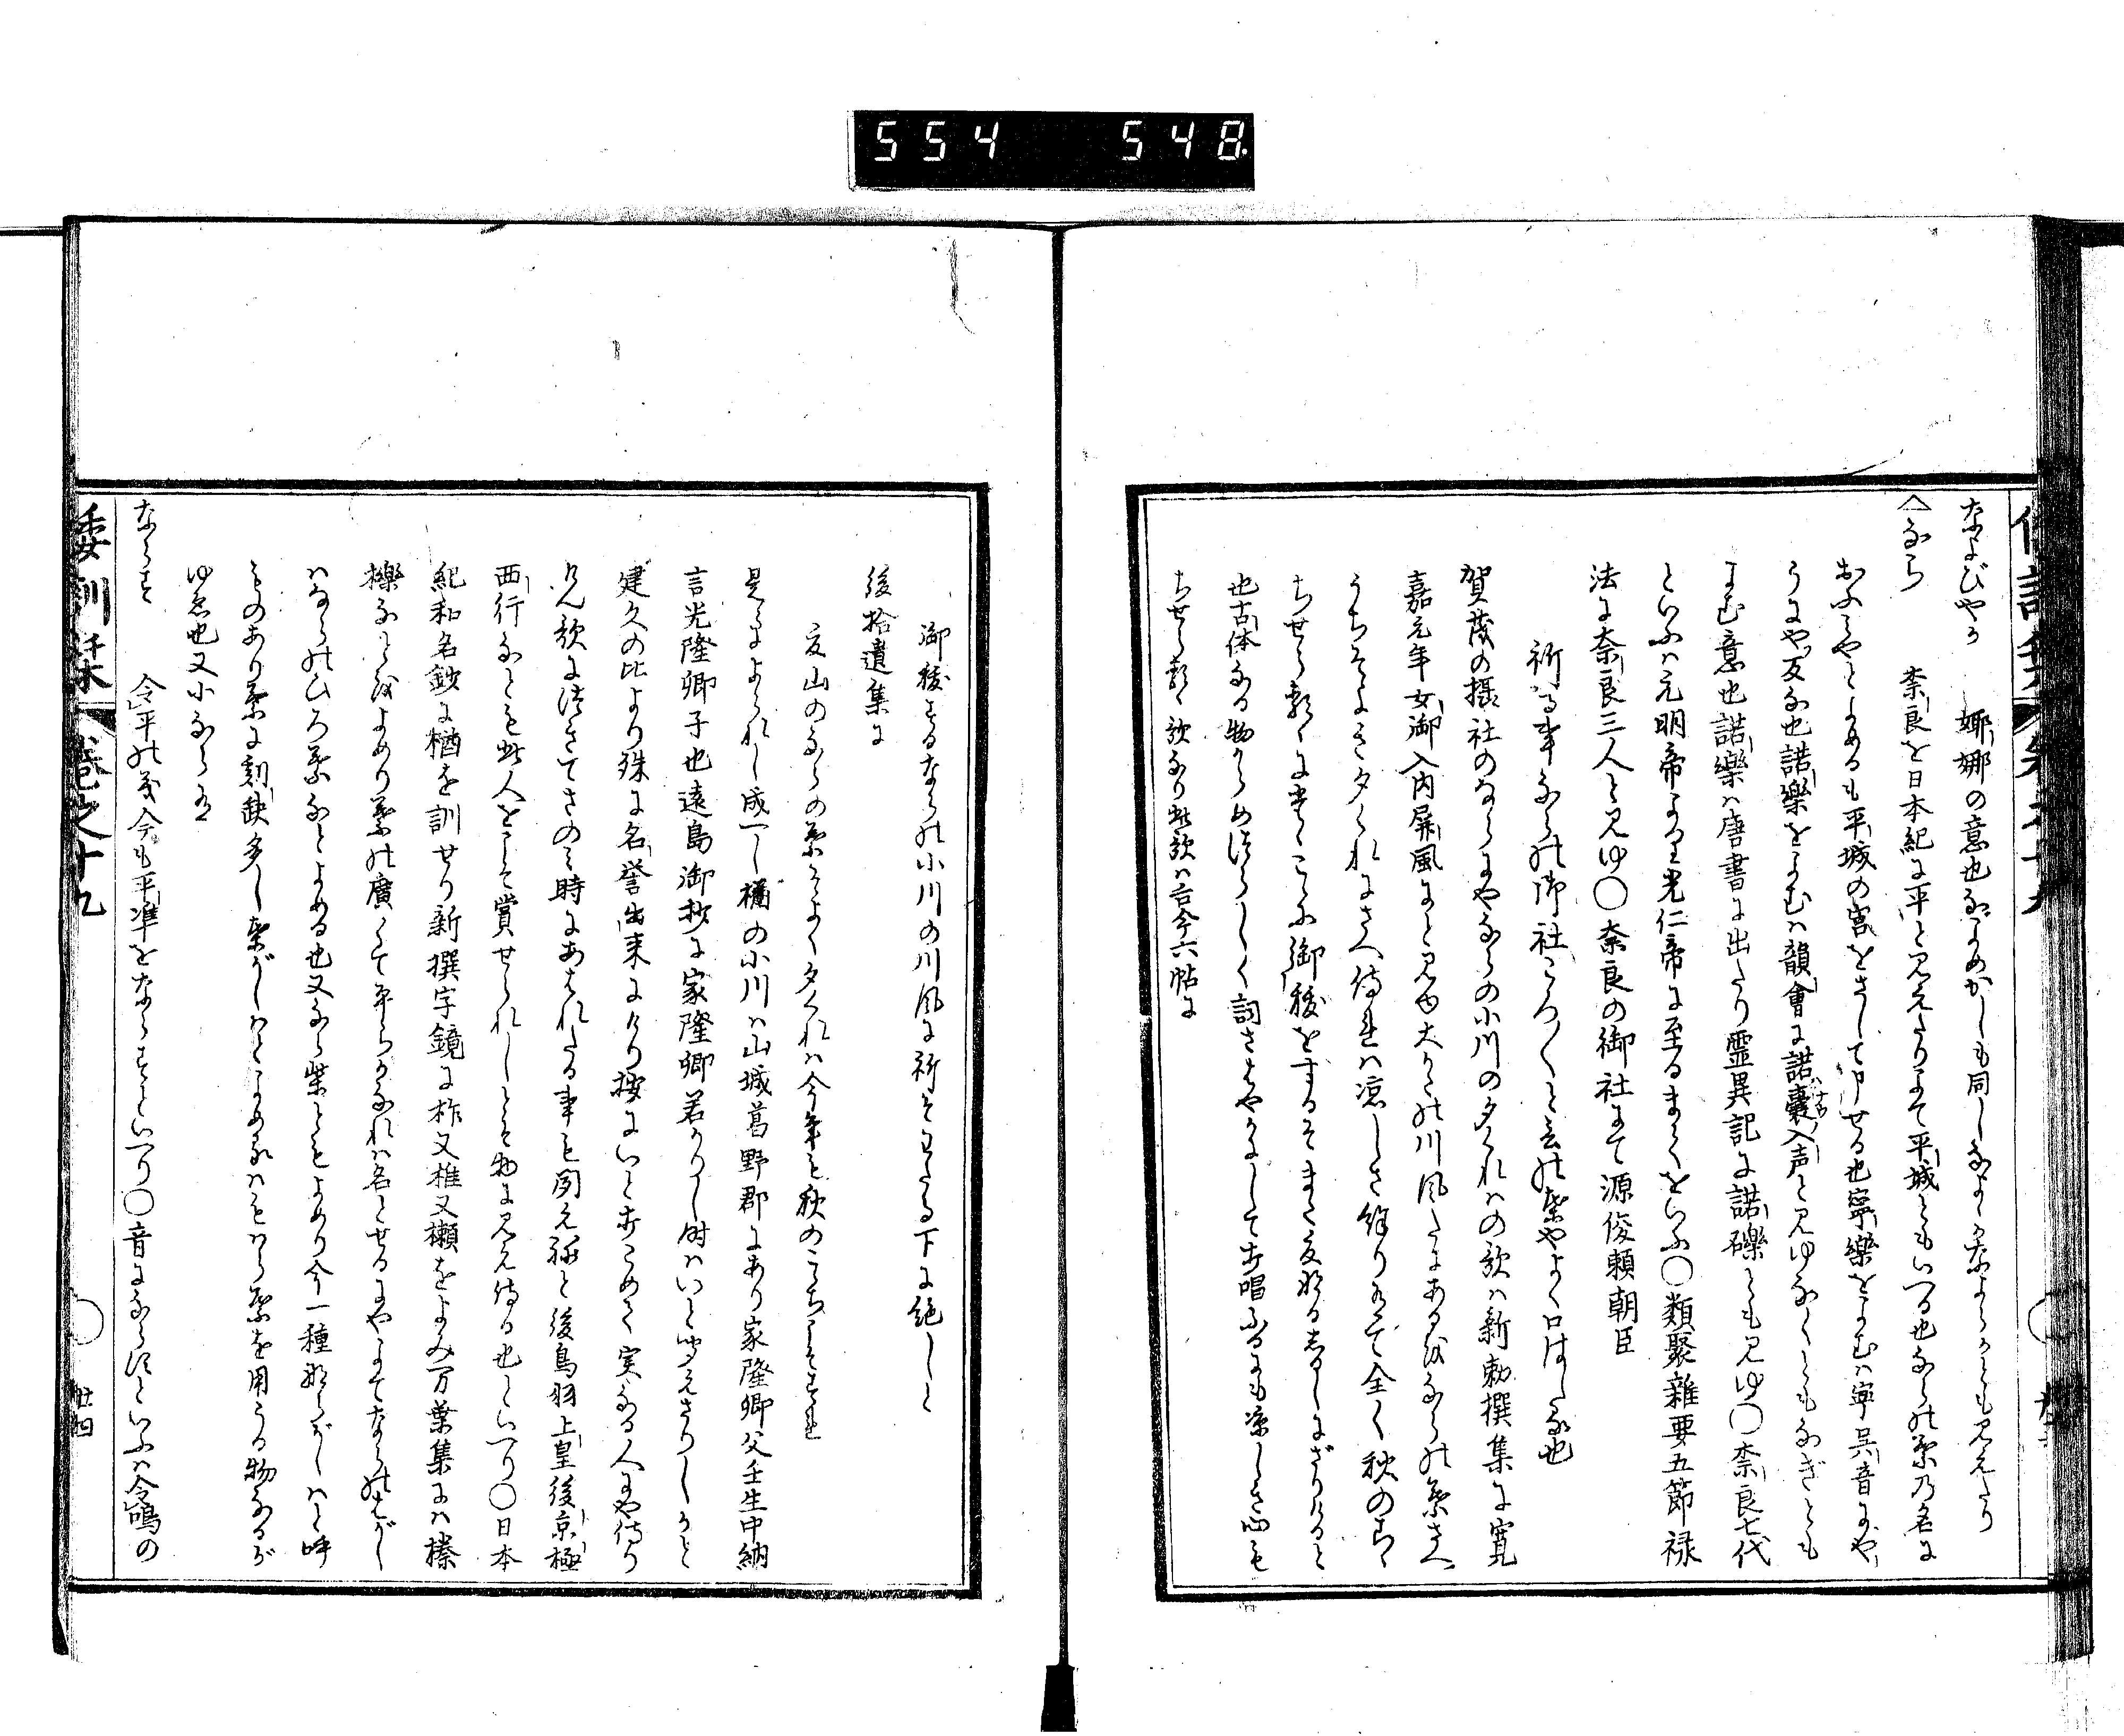 554 548
なよびやか 娜娜の意也なよめかしも同しなよゝかなよらかとも見えたり
なら 奈良を日本紀に平と見えたりよて平城ともいへる也ならの葉乃名に
おふみやとよめるも平城の宮をさして申せる也寧樂をよむは寧呉音にや
うにや反な也諾樂をよむは韻會に諾囊入声と見ゆなくともなぎとも
よむ意也諾樂は唐書に出たり霊異記に諾礫とも見ゆ○奈良七代
といふは元明帝より光仁帝に至るまてをいふ○類聚雜要五節禄
法に奈良三人と見ゆ○奈良の御社にて源俊頼朝臣
祈る事ならの御社ころ〳〵と云の葉やよく口はしたる也
賀茂の攝社のならにやならの小川の夕くれはの歌は新勅撰集に寛
嘉元年女御入内屏風にと見ゆ大かたの川風たにあるをならの葉さへ
うちそよき夕くれにさへ侍れは凉しさ餘り有て全く秋のこゝ
ちせらるゝにたゝこゝに御祓をするそまた夏なるしるしにざりけると
也古体なる物からめつらしく詞さはやかにして打唱ふるにも凉しき心も
ちせらるゝ歌なり此歌は古今六帖に
御祓するならの小川の川風に祈そわたる下に絶しと
後拾遺集に
夏山のならの葉そよく夕くれは今年も秋のこゝちこそすれ
是らによられし成へし楢の小川は山城葛野郡にあり家隆卿父壬生中納
言光隆卿子也遠島御抄に家隆卿若かりし時はいと聞えさりしかと
建久の比より殊に名誉出来にけり按にいと打こめて実なる人にや侍り
けん歌に好きてさのみ時にあはれたる事も聞え祢と後鳥羽上皇後京極
西行なとも此人をこそ賞せられしとそ物に見え侍る也といへり○日本
紀和名鈔に楢を訓せり新撰字鏡に柞又椎又櫴をよみ万葉集には搸
櫟なとをよめり葉の廣くて平らかなれは名とせるにやよてならのはがし
はならのひろ葉なとよめる也又なら柴ともよめり今一種ならがしはと呼
ものあり葉に刻缺多し葉がしはとよめるはもはら葉を用うる物なるが
ゆゑ也又小ならあり
ならす 令平の義今も平準をならすといへり○音にならすといふは令鳴の
倭訓栞 巻之十九 廿四